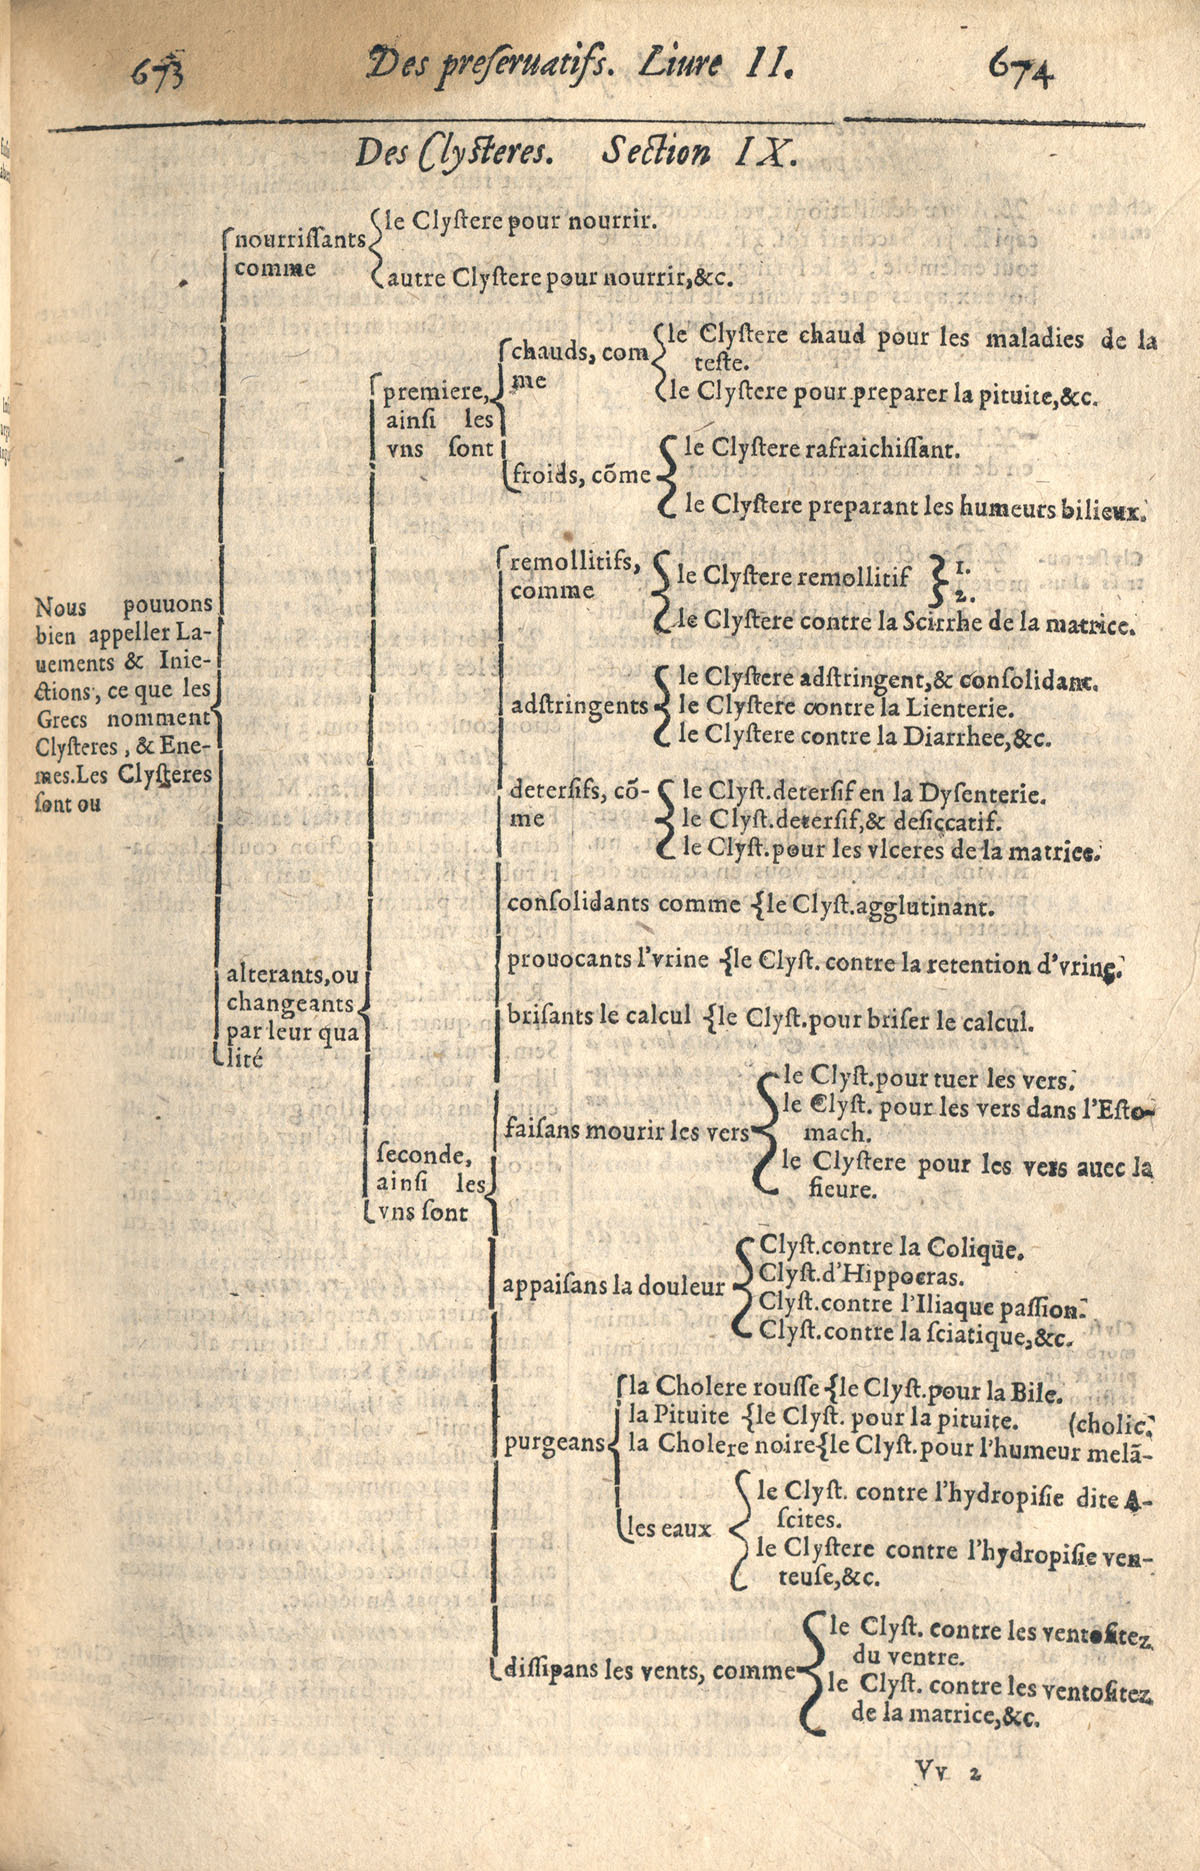 673
Des preſeruatifs. Liure II.
674
Des Clyſteres. Section IX.
Nous pouuons
bien appeller La-
uements & Inie-
ctions, ce que les
Grecs nomment
Clyſteres, & Ene-
mes. Les Clyſteres
ſont ou
nourriſſants
comme
le Clyſtere pour nourrir.
autre Clyſtere pour nourrir, &c.
alterants, ou
changeants
par leur qua
lité
premiere,
ainſi les
vns ſont
chauds, com
me
le Clyſtere chaud pour les maladies de la
teſte.
le Clyſtere pour preparer la pituite, &c.
froids, cõme
le Clyſtere rafraichiſſant.
le Clyſtere preparant les humeurs bilieux.
ſeconde,
ainſi les
vns ſont
remollitifs,
comme
le Clyſtere remollitif
1.
2.
le Clyſtere contre la Scirrhe de la matrice.
adſtringents
le Clyſtere adſtringent, & conſolidant.
le Clyſtere contre la Lienterie.
le Clyſtere contre la Diarrhee, &c.
deterſifs, cõ-
me
le Clyſt. deterſif en la Dyſenterie.
le Clyſt. deterſif, & deſiccatif.
le Clyſt. pour les vlceres de la matrice.
conſolidants comme {le Clyſt. agglutinant.
prouocants l'vrine {le Clyſt. contre la retention d'vrine.
briſants le calcul {le Clyſt. pour briſer le calcul.
faiſans mourir les vers
le Clyſt. pour tuer les vers.
le Clyſt. pour les vers dans l'Eſto-
mach.
le Clyſtere pour les vers auec la
fieure.
appaiſans la douleur
Clyſt. contre la Colique.
Clyſt. d'Hippocras.
Clyſt. contre l'Iliaque paſſion.
Clyſt. contre la ſciatique, &c.
purgeans
la Cholere rouſſe {le Clyſt. pour la Bile.
la Pituite {le Clyſt. pour la pituite. (cholic.
la Cholere noire {le Clyſt. pour l'humeur melã-
les eaux
le Clyſt. contre l'hydropiſie dite A-
ſcites.
le Clyſtere contre l'hydropiſie ven-
teuſe, &c.
diſſipans les vents, comme
le Clyſt. contre les ventoſitez
du ventre.
le Clyſt. contre les ventoſitez
de la matrice, &c.
Vv 2